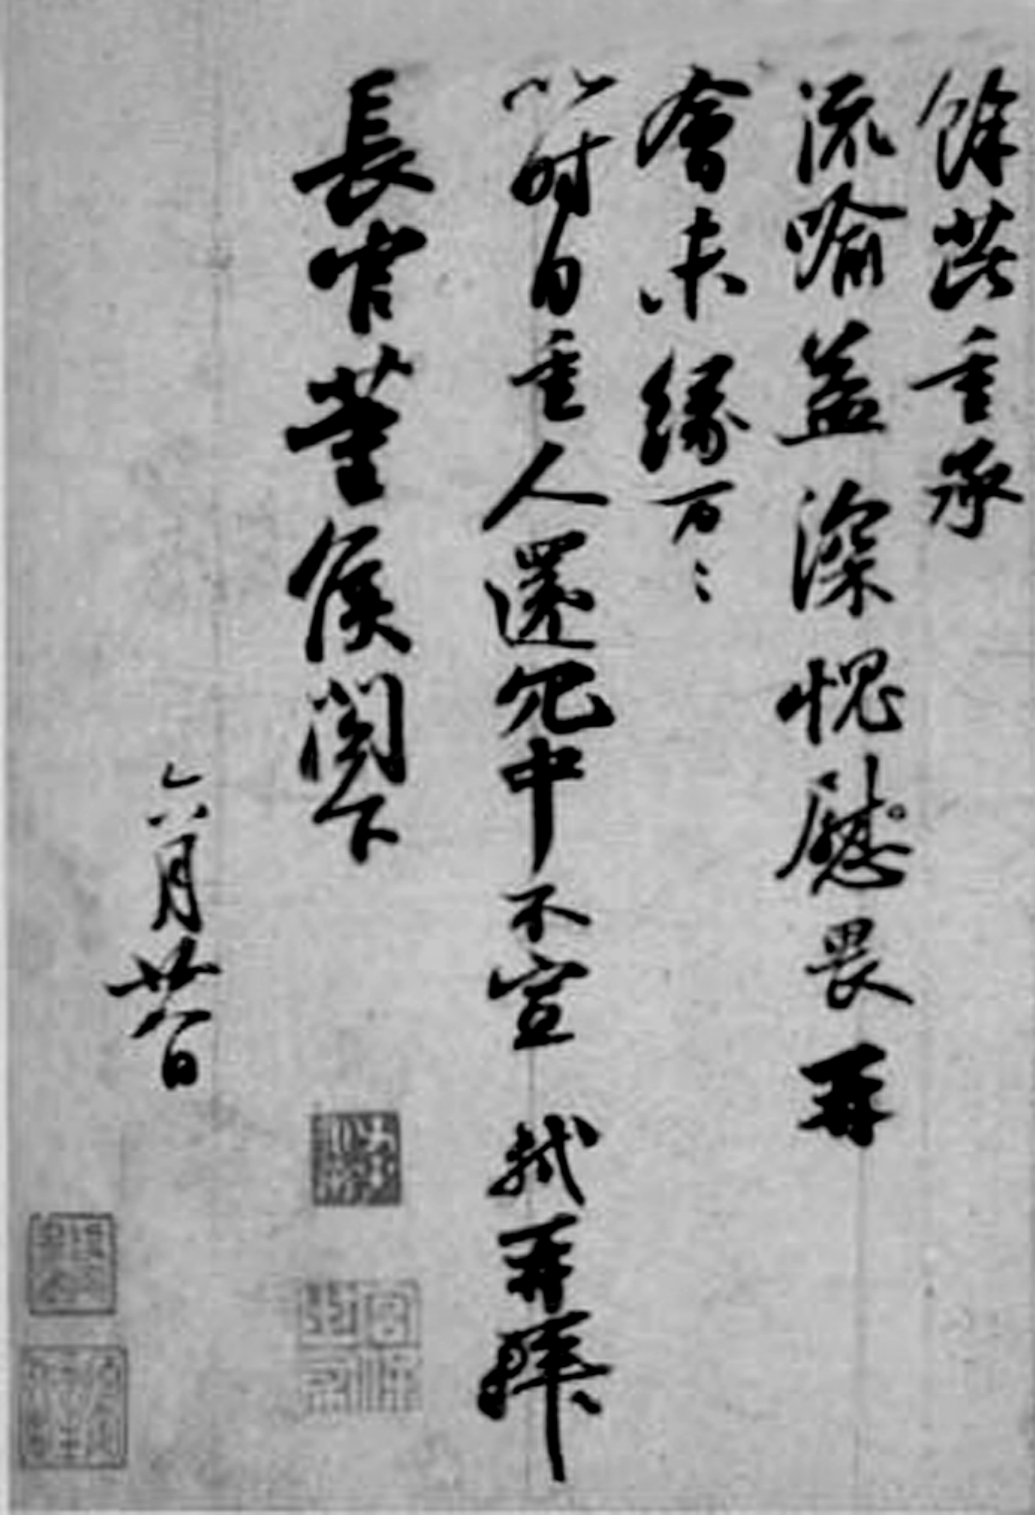 餘芘重承
流喻益深愧慰畏再
會未緣万〻
以時自重人還冗中不宣 軾再拜
長官董侯閣下
六月廿八日